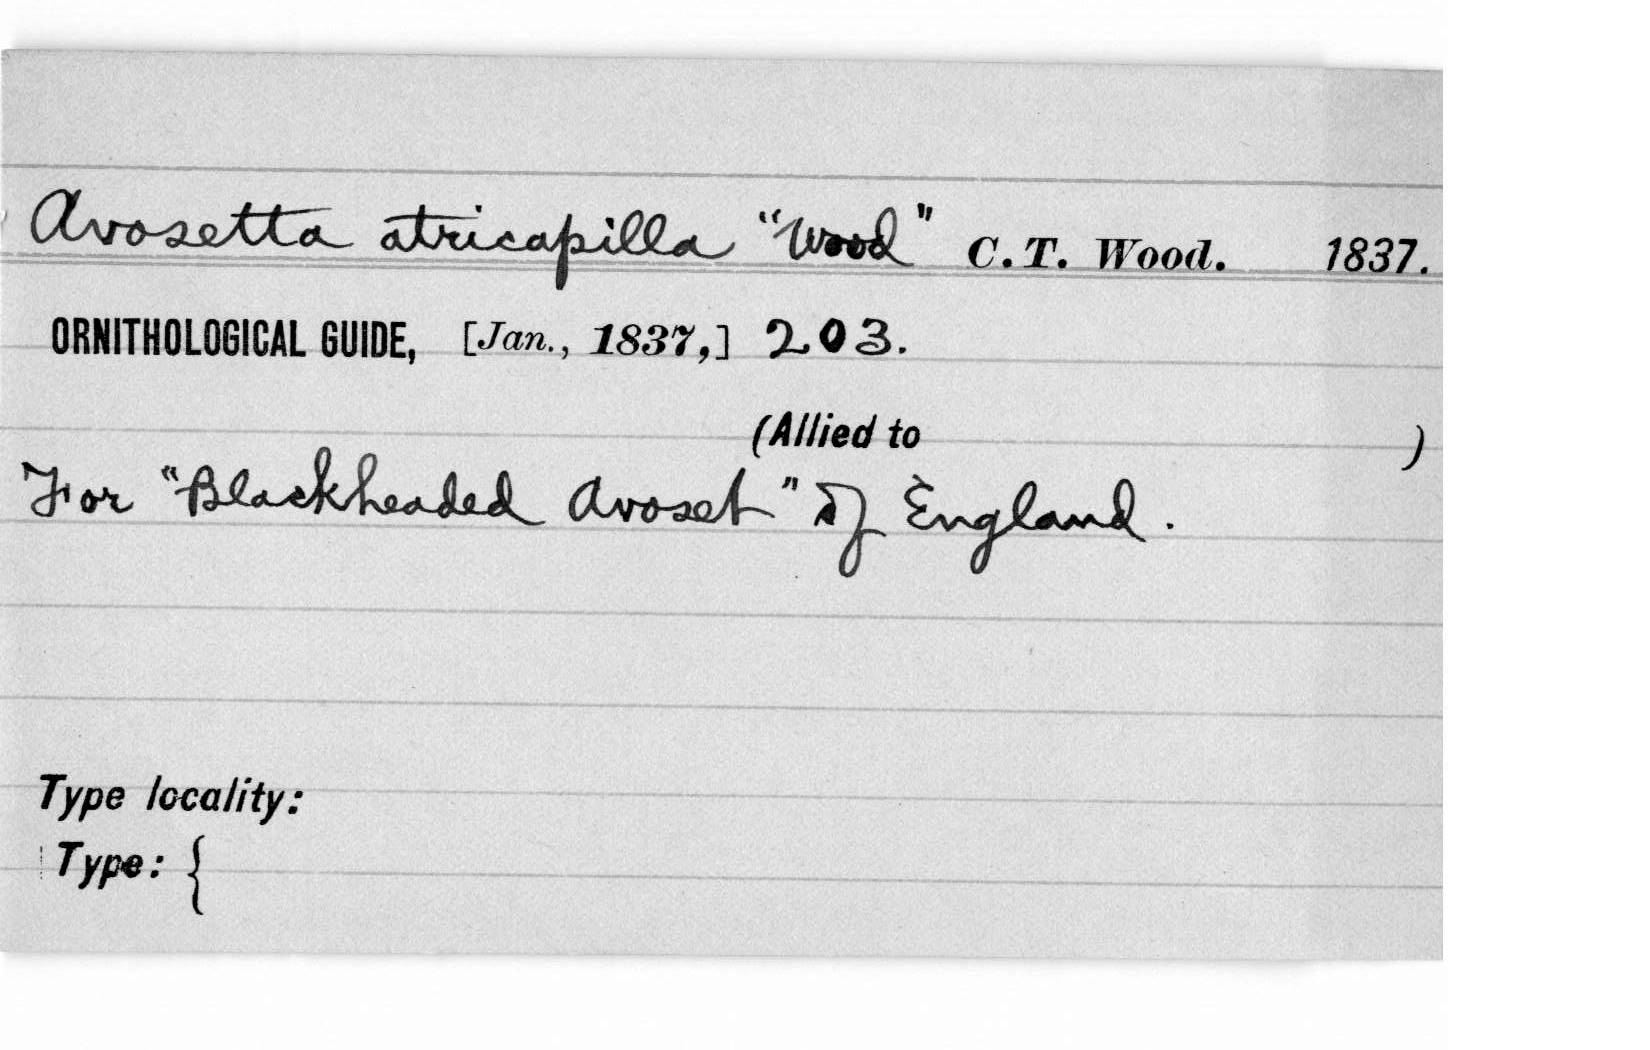 Avosetta atricapilla "Wood" C. T. Wood. 1837.
ORNITHOLOGICAL GUIDE, [Jan., 1837,] 203.
(Allied to )
For "Blackheaded Avoset" of England.
Type locality:
Type: {